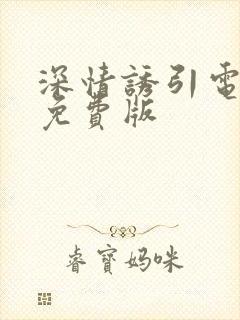 深情誘引電
免費版
睿寶媽咪